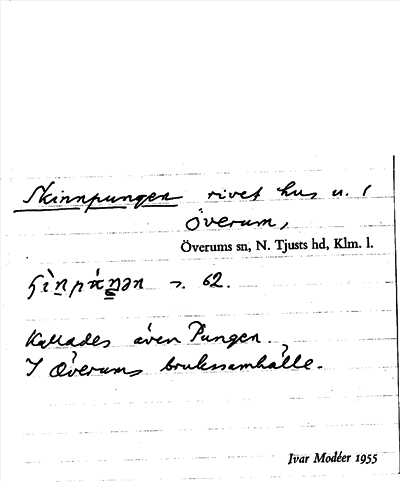 Skinnpungen rivet hus u. /
Överum,
Överums sn, N. Tjusts hd, Klm. l.
62.
Kallades även Pungen.
I Överums brukssamhälle.
Ivar Modéer 1955